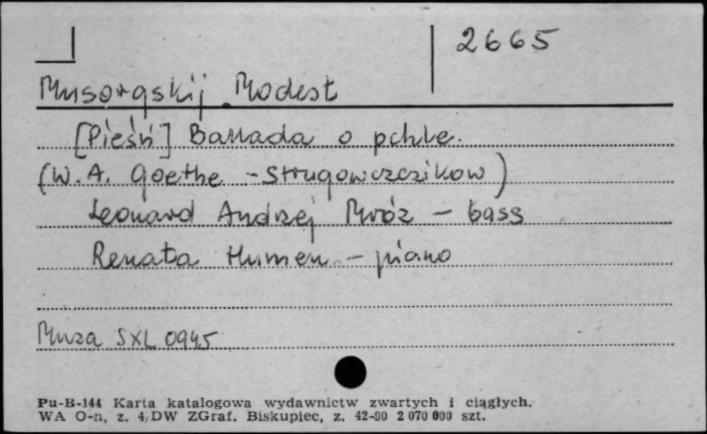 2665
Musorgskij Modest
[Pieśń] Ballada o pchle.
(W.A. Goethe - Strugowczczikow)
Leonard Andrzej Mróz - bass
Renata Humen - piano
Muza SXL 0945
Pu-B-144 Karta katalogowa wydawnictw zwartych i ciągłych.
WA O-n, z. 4/DW ZGraf. Biskupiec, z. 42-80 2 070 000 szt.